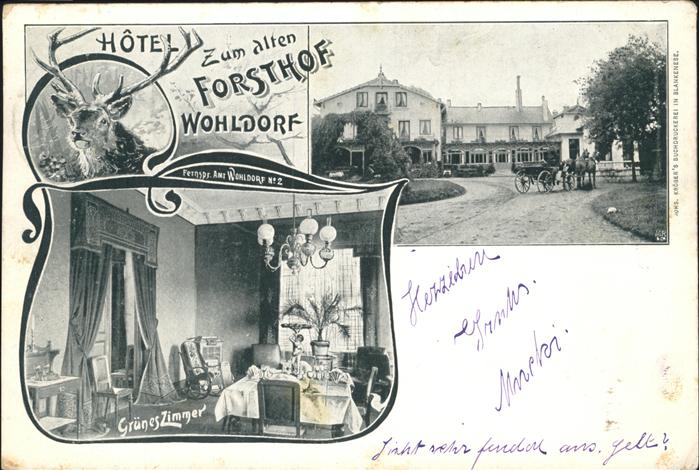 HÔTEL
Zum alten
FORSTHOF
WOHLDORF
Fernspr. Amt Wohldorf No 2
JOHS. KRÖGER'S BUCHDRUCKEREI IN BLANKENESE.
Grünes Zimmer
Herzlichen
Gruß.
Sieht sehr fendal aus. gelt?